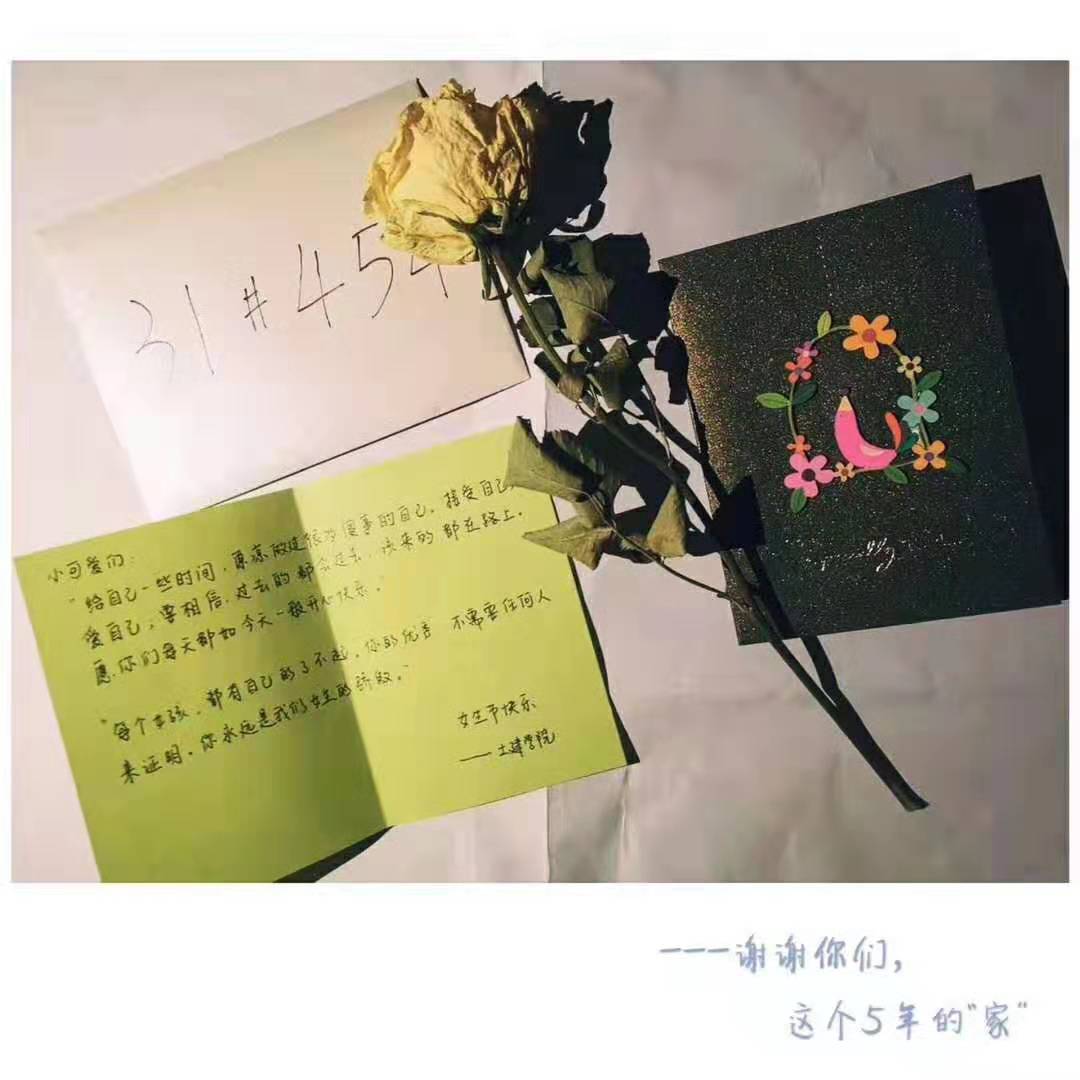 31#454
小可爱们:
"给自己一些时间,原谅做过很多傻事的自己。接受自己,
爱自己,要相信,过去的都会过去,该来的都在路上。
愿你们每天都如今天一般开心快乐。
"每个女孩,都有自己的了不起,你的优秀 不需要任何人
来证明。你永远是我们女生的骄傲。"
女生节快乐
——土建学院
---谢谢你们,
这个5年的"家"